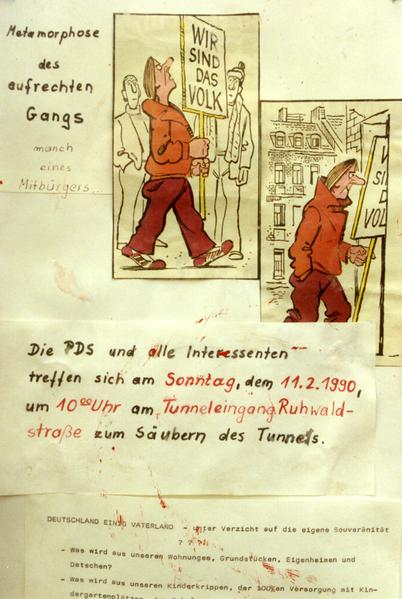 Metamorphose
des
aufrechten
Gangs
manch
eines
Mitbürgers...
WIR
SIND
DAS
VOLK
Die PDS und alle Interessenten
treffen sich am Sonntag, dem 11.2.1990,
um 10⁰⁰ Uhr am Tunneleingang Ruhwald-
straße zum Säubern des Tunnels.
DEUTSCHLAND EINIG VATERLAND - unter Verzicht auf die eigene Souveränität
? ? ?
- Was wird aus unseren Wohnungen, Grundstücken, Eigenheimen und
Datschen?
- Was wird aus unseren Kinderkrippen, der 100%en Versorgung mit Kin-